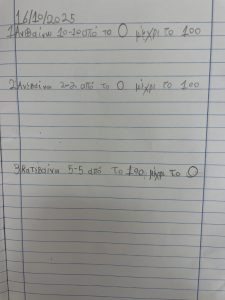 16/10/2025
1 Ανεβαίνω 10-10 από το 0 μέχρι το 100
2 Ανεβαίνω 2-2 από το 0 μέχρι το 100
3 Κατεβαίνω 5-5 από το 100 μέχρι το 0